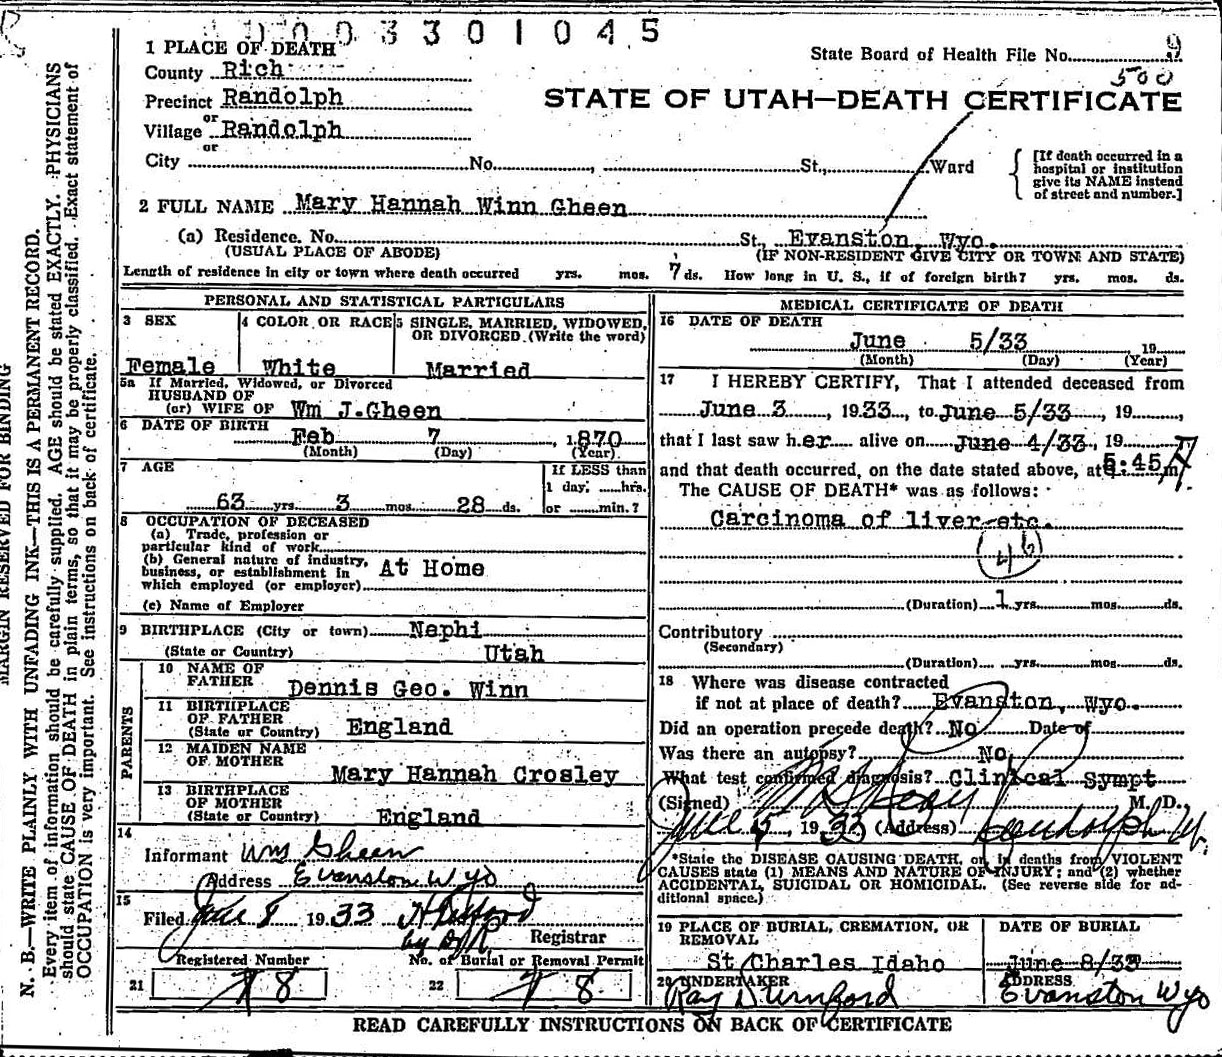 0003301045
1 PLACE OF DEATH
State Board of Health File No. 9
500
County Rich
Precinct Randolph
STATE OF UTAH—DEATH CERTIFICATE
or
Village Randolph
or
City No. St., Ward
[If death occurred in a
hospital or institution
give its NAME instead
of street and number.]
2 FULL NAME Mary Hannah Winn Gheen
(a) Residence. No. St., Evanston, Wyo.
(USUAL PLACE OF ABODE) (IF NON-RESIDENT GIVE CITY OR TOWN AND STATE)
Length of residence in city or town where death occurred yrs. mos. 7 ds. How long in U. S., if of foreign birth? yrs. mos. ds.
PERSONAL AND STATISTICAL PARTICULARS
3 SEX
Female
4 COLOR OR RACE
White
5 SINGLE, MARRIED, WIDOWED,
OR DIVORCED (Write the word)
Married
5a If Married, Widowed, or Divorced
HUSBAND OF
(or) WIFE OF Wm J.Gheen
6 DATE OF BIRTH
Feb 7, 1870
(Month) (Day) (Year)
7 AGE
63 yrs. 3 mos. 28 ds.
If LESS than
1 day, hrs.
or min.?
8 OCCUPATION OF DECEASED
(a) Trade, profession or
particular kind of work
(b) General nature of industry,
business, or establishment in
which employed (or employer)
At Home
(c) Name of Employer
9 BIRTHPLACE (City or town) Nephi
(State or Country) Utah
PARENTS
10 NAME OF
FATHER Dennis Geo. Winn
11 BIRTHPLACE
OF FATHER
(State or Country) England
12 MAIDEN NAME
OF MOTHER
Mary Hannah Crosley
13 BIRTHPLACE
OF MOTHER
(State or Country) England
14
Informant Wm Gheen
Address Evanston Wyo
15
Filed June 8 1933
Registrar
Registered Number No. of Burial or Removal Permit
21 8 22 8
MEDICAL CERTIFICATE OF DEATH
16 DATE OF DEATH
June 5/33 19
(Month) (Day) (Year)
17 I HEREBY CERTIFY, That I attended deceased from
June 3, 1933, to June 5/33, 19,
that I last saw her alive on June 4/33, 19
and that death occurred, on the date stated above, at 5:45 A m.
The CAUSE OF DEATH* was as follows:
Carcinoma of liver etc.
46
(Duration) 1 yrs. mos. ds.
Contributory
(Secondary)
(Duration) yrs. mos. ds.
18 Where was disease contracted
if not at place of death? Evanston, Wyo.
Did an operation precede death? No Date of
Was there an autopsy? No.
What test confirmed diagnosis? Clinical Sympt
(Signed) M. D.,
June 5, 1933 (Address) Randolph Ut.
*State the DISEASE CAUSING DEATH, or, in deaths from VIOLENT
CAUSES state (1) MEANS AND NATURE OF INJURY; and (2) whether
ACCIDENTAL, SUICIDAL OR HOMICIDAL. (See reverse side for ad-
ditional space.)
19 PLACE OF BURIAL, CREMATION, OR
REMOVAL
St Charles Idaho
DATE OF BURIAL
June 8/33
20 UNDERTAKER
Ray
ADDRESS
Evanston Wyo
READ CAREFULLY INSTRUCTIONS ON BACK OF CERTIFICATE
MARGIN RESERVED FOR BINDING
N. B.—WRITE PLAINLY WITH UNFADING INK—THIS IS A PERMANENT RECORD.
Every item of information should be carefully supplied. AGE should be stated EXACTLY. PHYSICIANS
should state CAUSE OF DEATH in plain terms, so that it may be properly classified. Exact statement of
OCCUPATION is very important. See instructions on back of certificate.